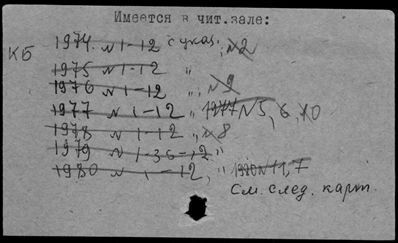 Имеется в чит.зале:
КБ 1974. N 1-12 с указ., N2
1975 N 1-12 "
1976 N 1-12 ", N9
1977 N 1-12 " 1977 N5, 6, 10
1978 N 1-12 ", N8
1979 N 1-3 6-12 "
1980 N 1-12, " 1980 N 11, 7
См. след. карт.